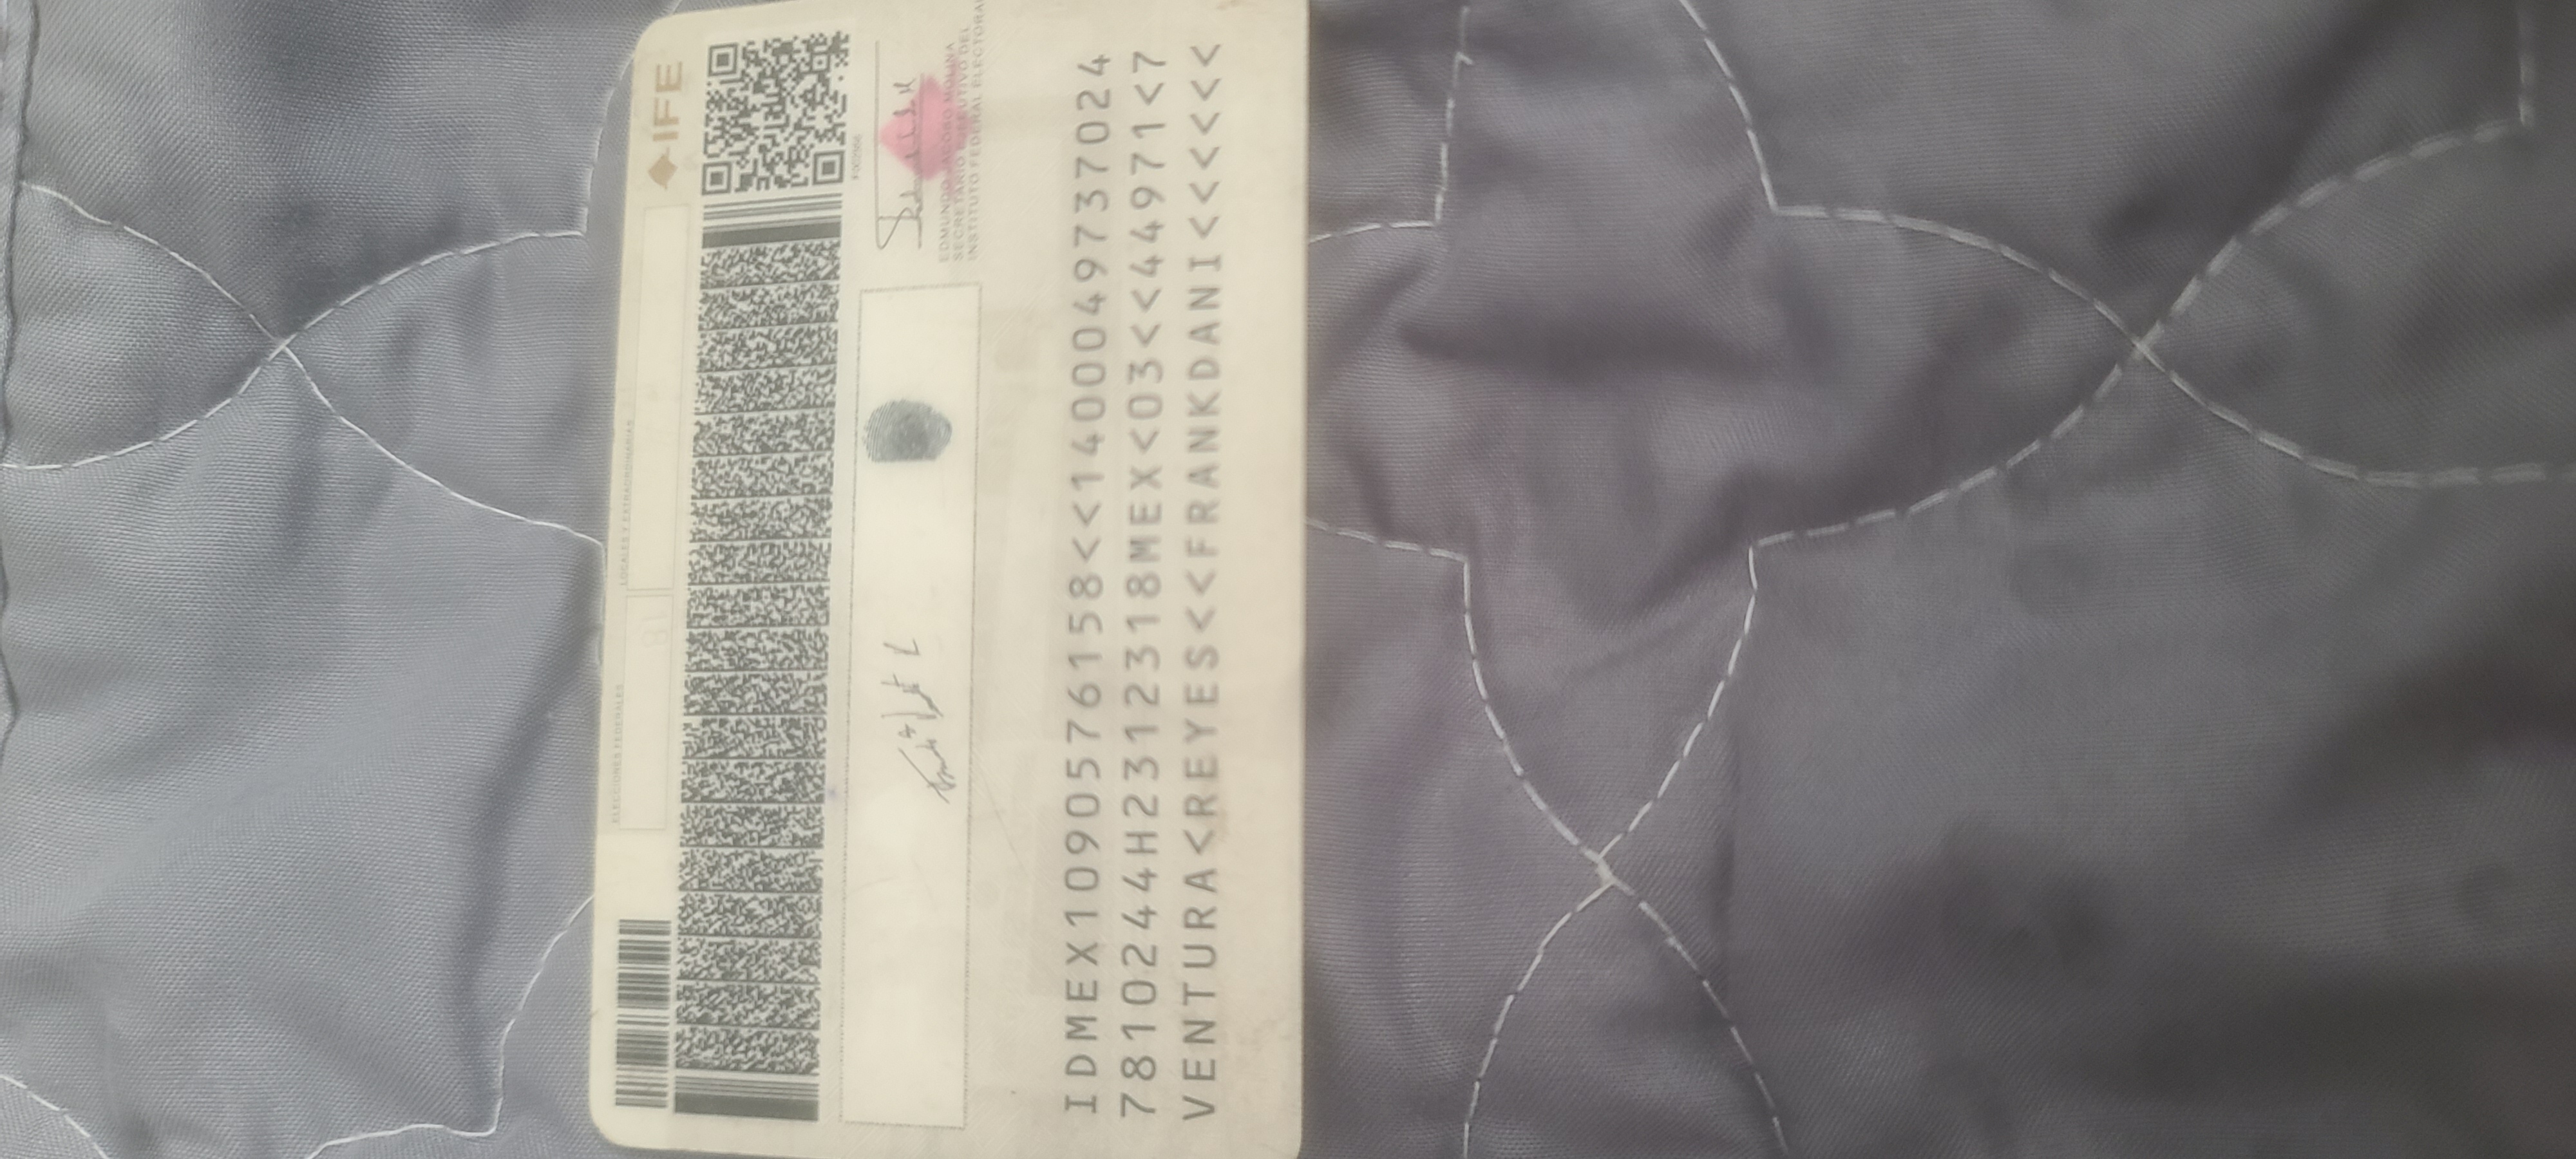 IFE
ELECCIONES FEDERALES
LOCALES Y EXTRAORDINARIAS
18
EDMUNDO JACOBO MOLINA
SECRETARIO EJECUTIVO DEL
INSTITUTO FEDERAL ELECTORAL
IDMEX1090576158<<1400049737024
7810244H2312318MEX<03<<44971<7
VENTURA<REYES<<FRANKDANI<<<<<<